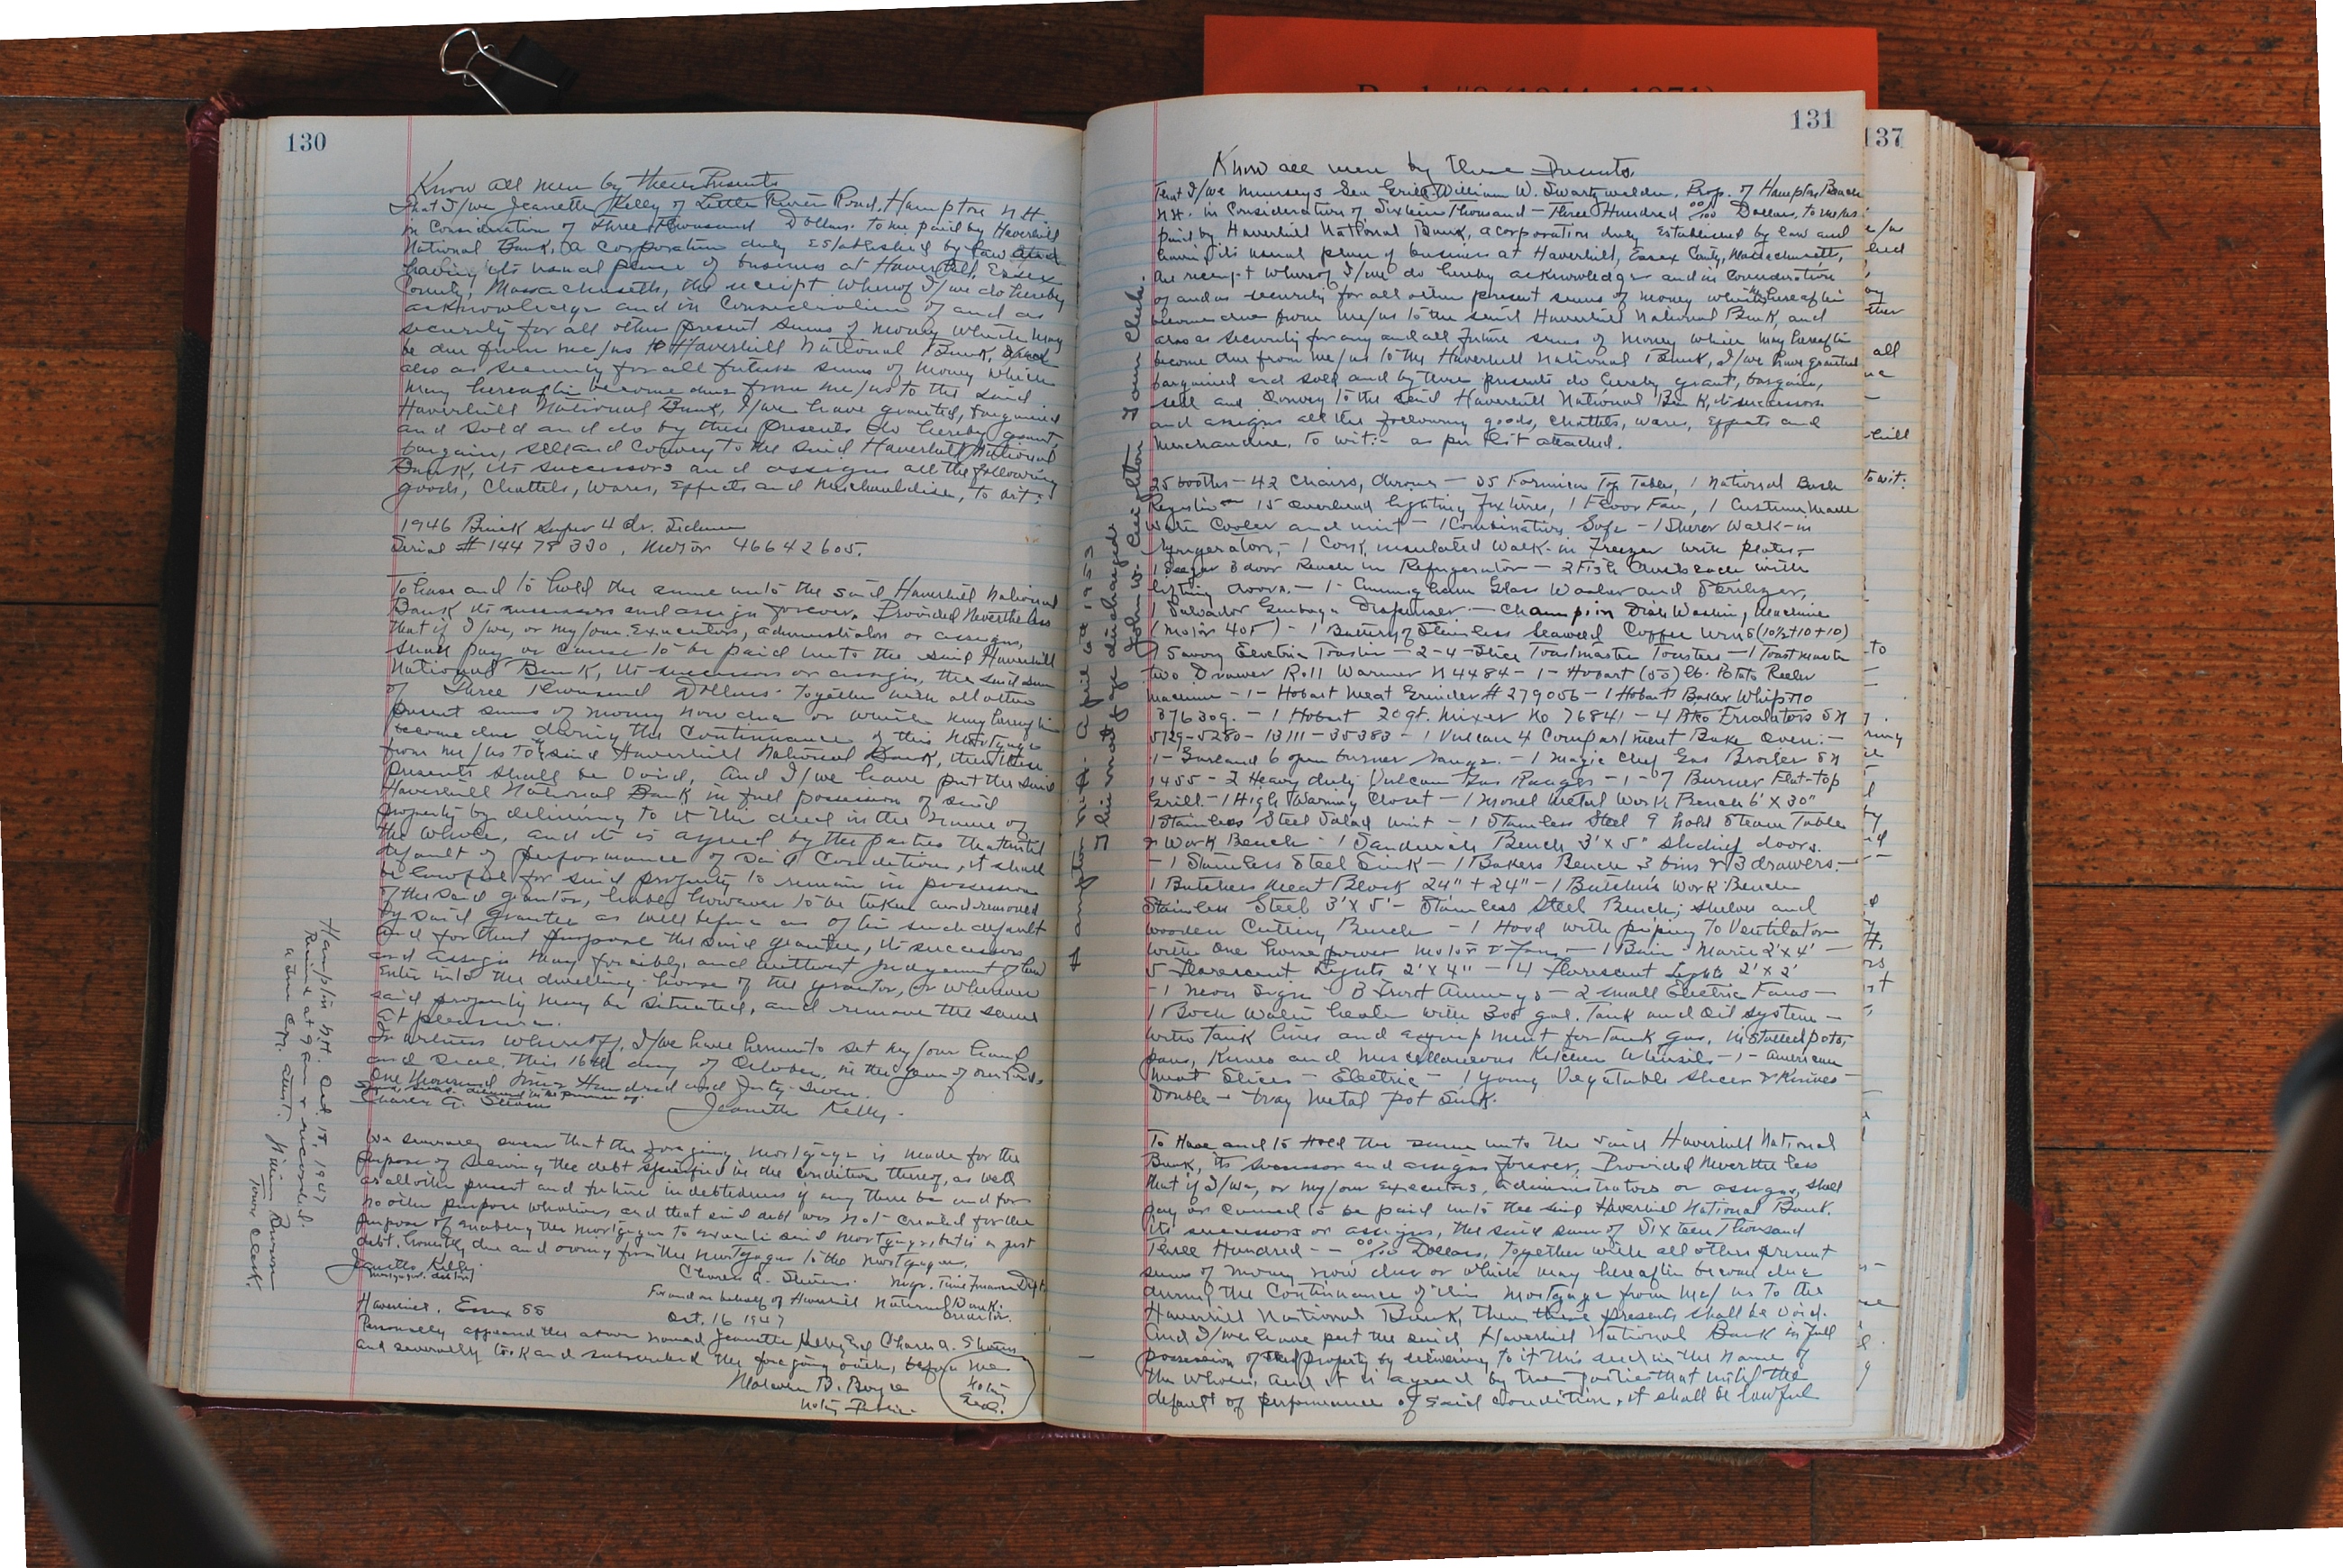 130
Know all men by these Presents
That I/we Jeanette Kelly of Little River Road, Hampton N H.
in Consideration of Three Thousand Dollars. to me paid by Haverhill
National Bank, a Corporation duly Established by law and
having its usual place of business at Haverhill, Essex
County, Massachusetts, the receipt whereof I/we do hereby
acknowledge and in Consideration of and as
security for all other present sums of money which may
be due from me/us to Haverhill National Bank, and
also as security for all future sums of money which
may hereafter become due from me/us to the said
Haverhill National Bank, I/we have granted, bargained
and sold and do by these presents do hereby grant,
bargain, sell and convey to the said Haverhill National
Bank, its successors and assigns all the following
goods, Chattels, Wares, Effects and Merchandise, to wit:
1946 Buick Super 4 dr. Sedan
Serial # 144 78 330, Motor 46642605.
To have and to hold the same unto the said Haverhill National
Bank its successors and assign forever. Provided Nevertheless
that if I/we, or my/our Executors, administrators or assigns,
shall pay or cause to be paid unto the said Haverhill
National Bank, its successors or assigns, the said sum
of Three Thousand Dollars. together with all other
present sums of money now due or which may hereafter
become due during the Continuance of this Mortgage
from me/us to said Haverhill National Bank, then these
presents shall be void, and I/we have put the said
Haverhill National Bank in full possession of said
property by delivering to it this deed in the name of
the whole, and it is agreed by the parties that until
default of performance of said Condition, it shall
be lawful for said property to remain in possession
of the said grantor, liable however to be taken and removed
by said grantee as well before as after such default
and for that purpose the said grantee, its successors
and assigns may forcibly, and without judgement of law
Enter into the dwelling-house of the grantor, or wherever
said property may be situated, and remove the same
at pleasure.
In witness whereof, I/we have hereunto set my/our hand
and seal this 16th day of October, in the year of our Lord,
One Thousand Nine Hundred and Forty-Seven.
Signed, sealed, delivered in the presence of,
Charles A. Stevens Jeanette Kelly.
We severally swear that the foregoing mortgage is made for the
purpose of securing the debt specified in the condition thereof, as well
as all other present and future indebtedness if any there be and for
no other purpose whatever, and that said debt was not created for the
purpose of enabling the mortgagor to execute said mortgage, but is a just
debt, honestly due and owing from the mortgagor to the mortgagee.
Jeanette Kelly Charles A. Stevens. Mngr. Time Finance Dept
mortgagor. debtor For and on behalf of Haverhill National Bank.
creditor.
Haverhill, Essex SS Oct. 16 1947
Personally appeared the above named Jeanette Kelly and Charles A. Stevens
and severally took and subscribed the foregoing oath, before me
Malcolm B. Boyce
Notary Public.
Notary
Seal.
Hampton N.H. Oct. 18, 1947
Received at 9 am & recorded.
a true copy. attest. William Brown
Town Clerk.
131
Know all men by these Presents,
That I/we Munsey's Sea Grill, William W. Swartzwelder, Prop. of Hampton Beach
N.H. in Consideration of Sixteen Thousand — Three Hundred 00/100 Dollars, to me/us
paid by Haverhill National Bank, a corporation duly Established by law and
having its usual place of business at Haverhill, Essex County, Massachusetts,
the receipt whereof I/we do hereby acknowledge and in consideration
of and as security for all other present sums of money which may hereafter
become due from me/us to the said Haverhill National Bank, and
also as security for any and all future sums of money which may hereafter
become due from me/us to the Haverhill National Bank, I/we have granted
bargained and sold and by these presents do hereby grant, bargain,
sell and convey to the said Haverhill National Bank, its successors
and assigns all the following goods, Chattels, wares, Effects and
Merchandise, to wit:- as per list attached.
25 booths — 42 Chairs, chrome — 35 Formica Top Tables, 1 National Cash
Register — 15 overhead lighting fixtures, 1 Floor Fan, 1 Custom Made
Water Cooler and unit — 1 Combination Safe — 1 Sherer Walk-in
refrigerator, — 1 Cork insulated Walk-in Freezer with plates, —
1 Seeger 3 door Reach in Refrigerator — 2 Fish with
lifting doors. — 1 Cunningham Glass Washer and Sterilizer,
1 Salvador Garbage Dispenser — Champion Dish Washing Machine
(motor 405) — 1 Battery of Stainless Seaweld Coffee Urns (10½+10+10)
1 Savory Electric Toaster — 2-4-Slice Toastmaster Toasters — 1 Toastmaster
two Drawer Roll Warmer N 4484 — 1 — Hobart (50) lb. Potato Peeler
machine — 1 — Hobart Meat Grinder # 279056 — 1 Hobart Baker Whip no
376309. — 1 Hobart 20 qt. Mixer No 76841 — 4 Frialators SN
5729-5280- 13111-35383 — 1 Vulcan 4 Compartment Bake Oven. —
1- Garland 6 open burner range. — 1 Magic Chef Gas Broiler SN
1455 — 2 Heavy duty Vulcan Gas Ranges — 1 — 7 Burner Flat-top
Grill — 1 High Warming Closet — 1 Monel Metal Work Bench 6' X 30"
1 Stainless Steel Salad Unit — 1 Stainless Steel 9 hold Steam Table
& Work Bench — 1 Sandwich Bench 3' X 5' sliding doors.
— 1 Stainless Steel Sink — 1 Bakers Bench 3 bins & 3 drawers. —
1 Butchers Meat Block 24" + 24" — 1 Butcher's Work Bench
Stainless Steel 3' X 5' — Stainless Steel Bench; shelves and
wooden Cutting Bench — 1 Hood with piping to Ventilator
with one horse power motor & Fan — 1 Bain-Marie 2' x 4' —
5 Florescent Lights 2' X 4" — 4 Florescent Lights 2' X 2'
— 1 Neon Sign — 3 Front Awnings — 2 small Electric Fans —
1 Bock Water heater with 300 gal. Tank and Oil system —
with tank lines and equipment for tank gas, pots,
pans, Knives and miscellaneous Kitchen Utensils — 1 — American
Meat Slicer — Electric — 1 Young Vegetable Slicer & Knives —
Double — tray Metal pot Sink.
To Have and to Hold the same unto the said Haverhill National
Bank, its successor and assigns forever, Provided Never the less
that if I/we, or my/our Executors, administrators or assigns, shall
pay or caused to be paid unto the said Haverhill National Bank.
its successors or assigns, the said sum of Sixteen Thousand
Three Hundred — 00/100 Dollars, together with all others present
sums of money now due or which may hereafter become due
during the Continuance of this Mortgage from me/us to the
Haverhill National Bank, then these presents shall be void.
And I/we have put the said Haverhill National Bank in full
possession of said property by delivering to it this deed in the name of
the whole, and it is agreed by the parties that until the
default of performance of said condition, it shall be lawful
Hampton N.H. April 1953
This mortgage discharged
John W. Creighton Town Clerk.
137